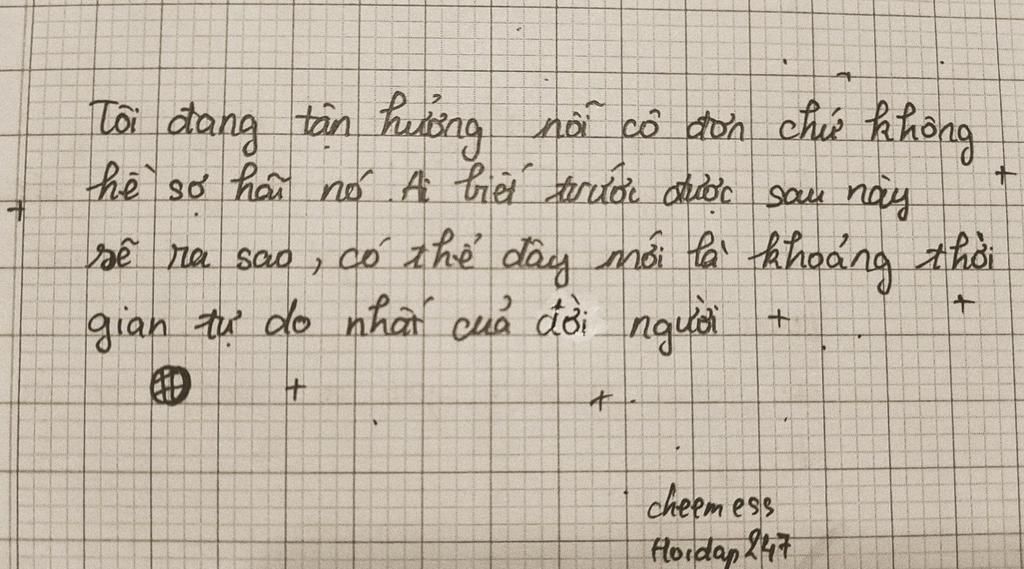 Tôi đang tận hưởng nỗi cô đơn chứ không
hề sợ hãi nó. Ai biết trước được sau này
sẽ ra sao, có thể đây mới là khoảng thời
gian tự do nhất của đời người
cheemess
Hoidap247